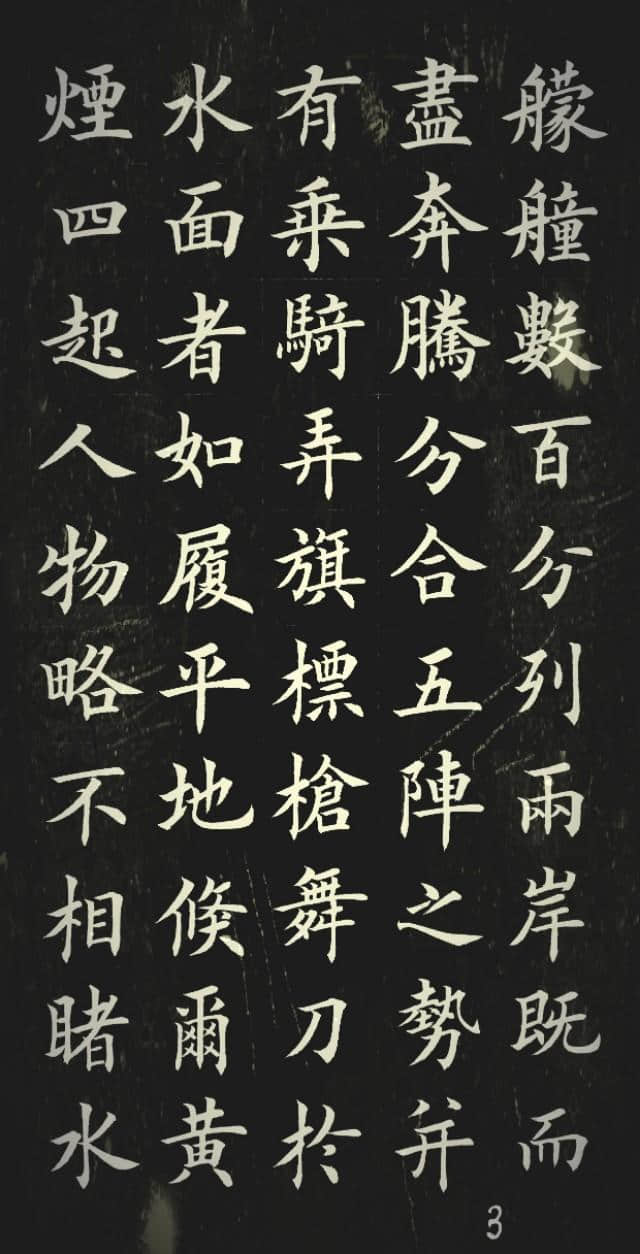 艨艟數百分列兩岸既而
盡奔騰分合五陣之勢并
有乗騎弄旗標槍舞刀於
水面者如履平地倐爾黄
煙四起人物略不相睹水
3